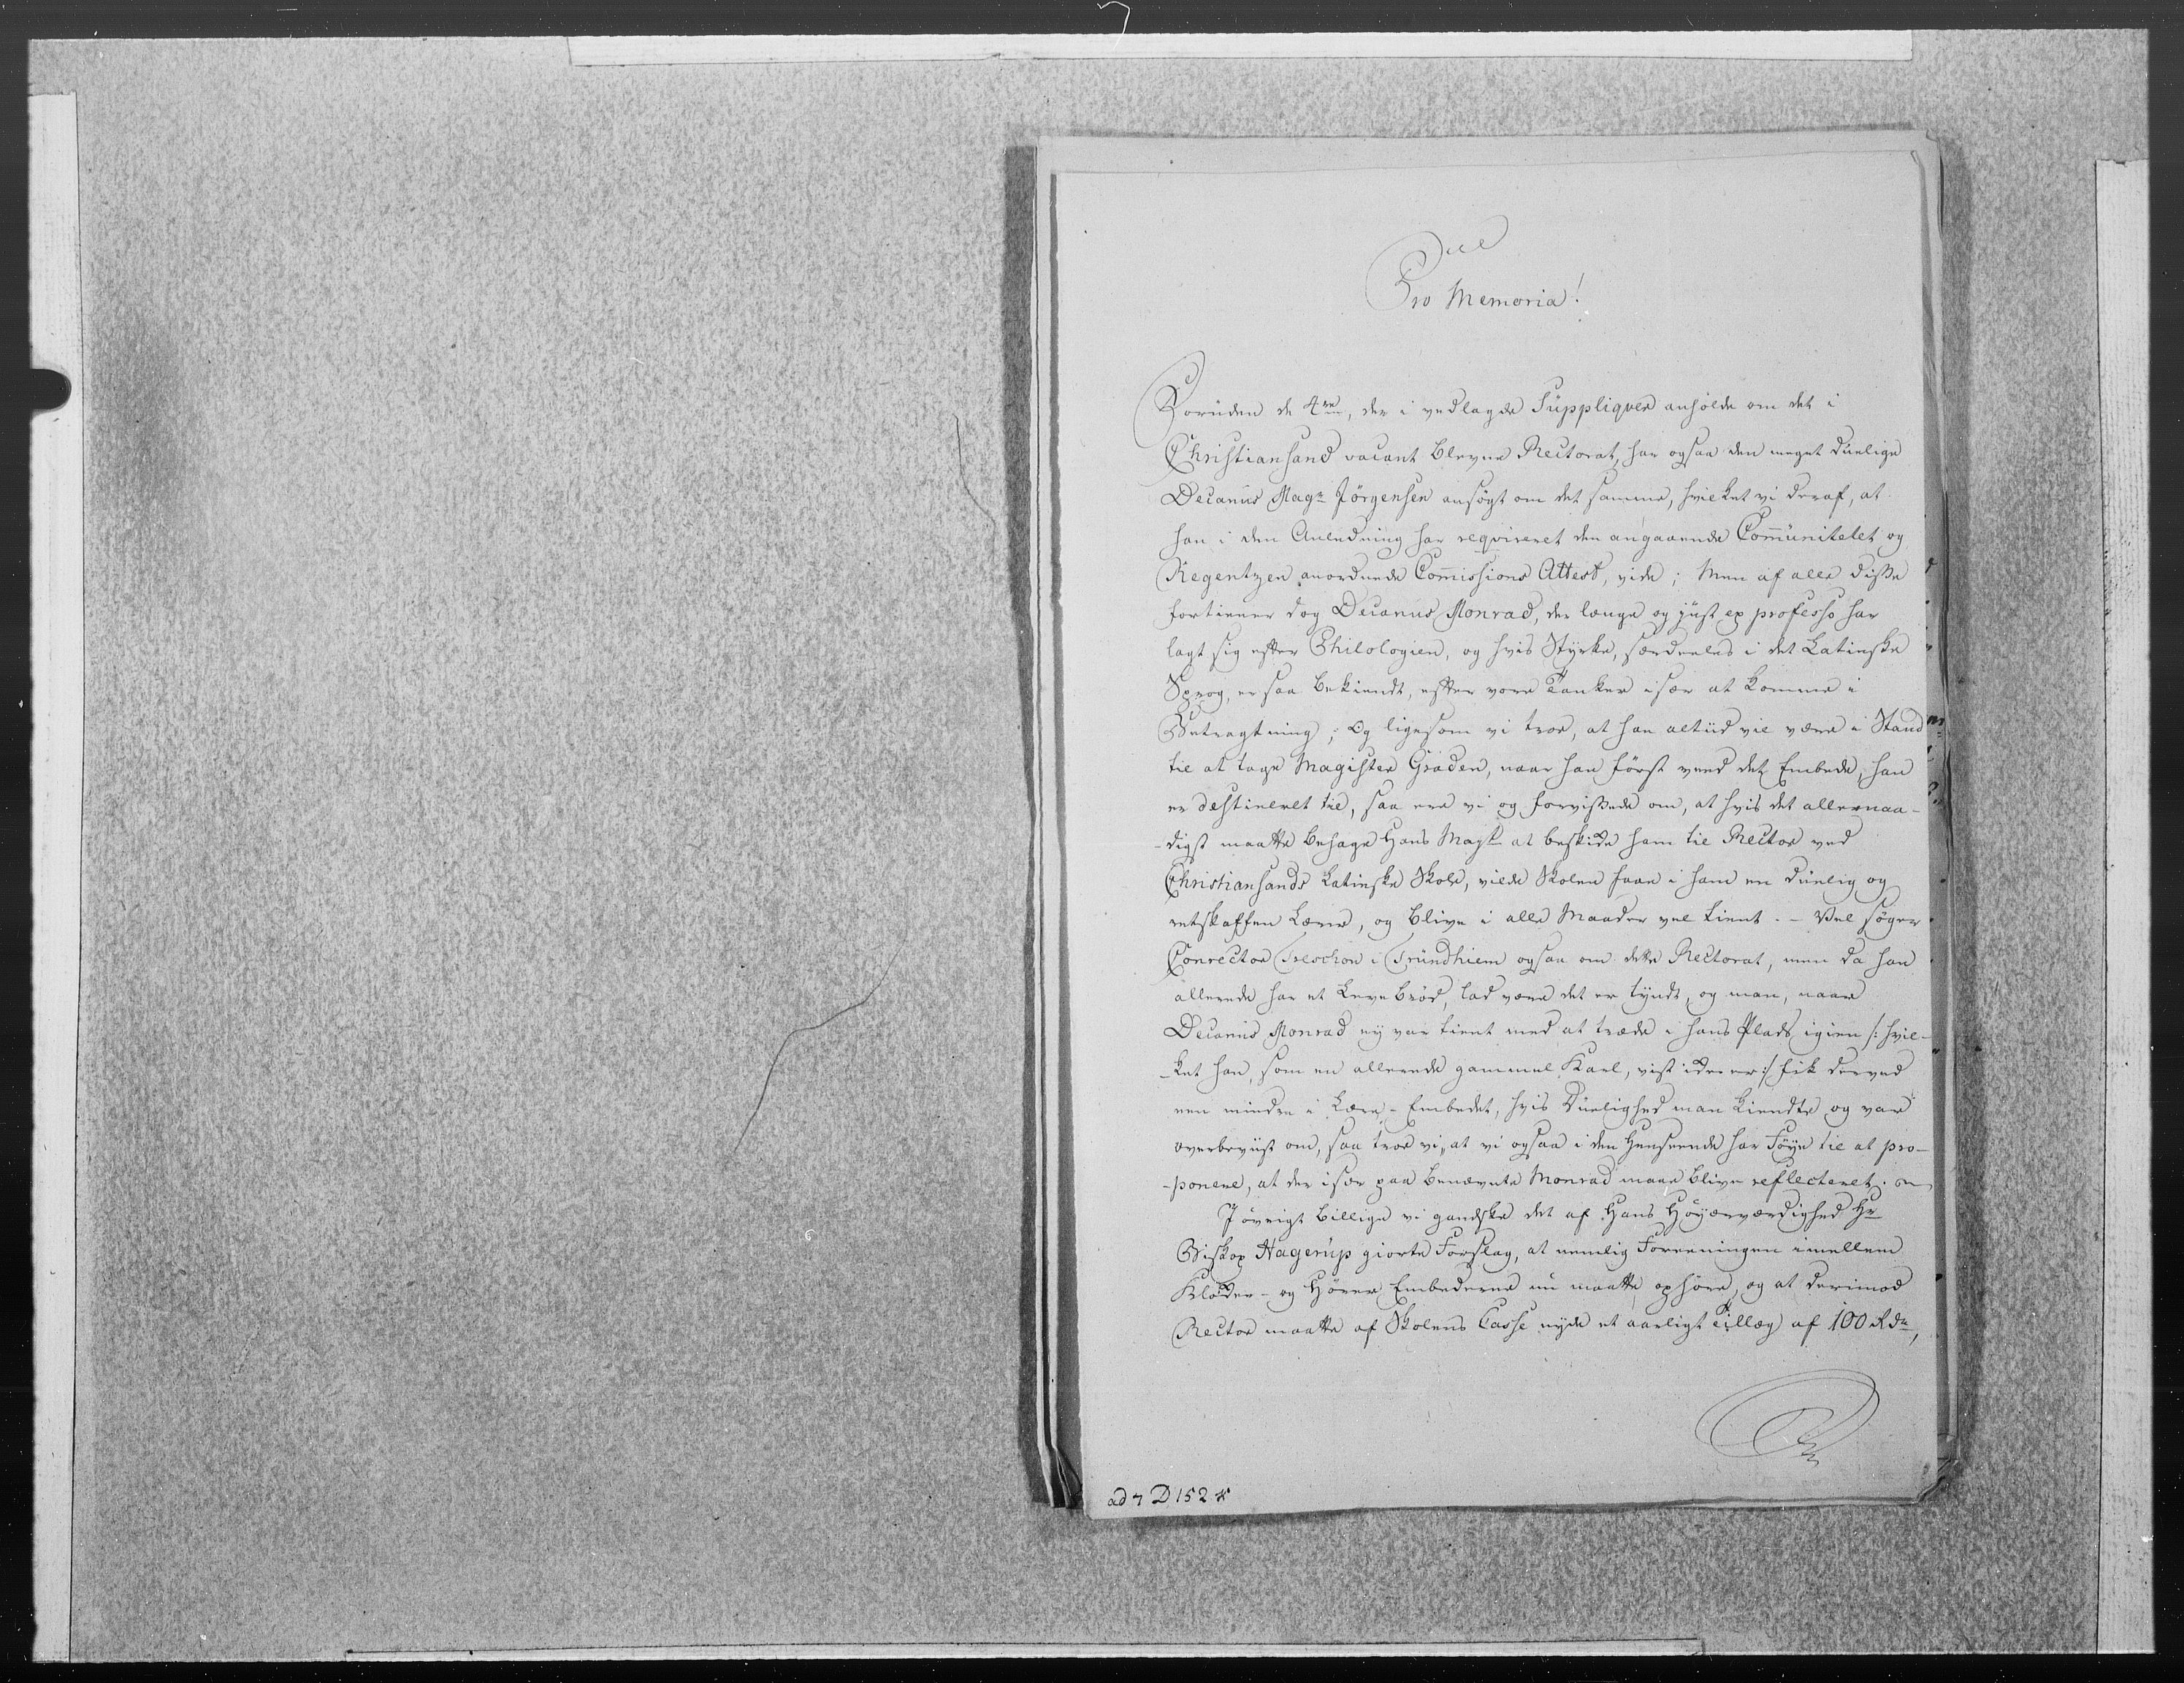 Pro Memoria!
Foruden de 4re, der i vedlagde Suppliquer anholde om det i
Christiansand vacant blevne Rectorat, har ogsaa den meget duelige
Decanus Magr Jörgensen ansögt om det samme, hvilket vi deraf, at
han i den Anledning har reqvireret den angaaende Communitetet og
Regentzen anordnede Commissions Attest, vide; Men af alle disse
fortiener dog Decanus Monrad, der længe og just ex professo har
lagt sig efter Philologien, og hvis Styrke, særdeeles i det Latinske
Sprog, er saa bekiendt, efter vore Tanker især at komme i
Betragtning; Og ligesom vi troe, at han altiid vil være i Stand
til at tage Magister Graden, naar han först veed det Embede, han
er destineret til, saa ere vi og forvissede om, at hvis det allernaa-
-digst maatte behage Hans Mayt at beskikke ham til Rector ved
Christiansands Latinske Skole, vilde Skolen faae i ham en duelig og
retskaffen Lærer, og blive i alle Maader vel tient. - Vel söger
Conrector Treschow i Trundhiem ogsaa om dette Rectorat, men da han
allerede har et Levebröd, lad være det er tyndt, og man, naar
Decanus Monrad ey var tient med at træde i hans Plads igien /: hvil-
-ket han, som en allerede gammel Karl, vist ikke er :/ fik derved
een mindre i Lære-Embedet, hvis Duelighed man kiendte og var
overbeviist om, saa troe vi, at vi ogsaa i den Henseende har Föye til at pro-
-ponere, at der især paa benævnte Monrad maae blive reflecteret.
I övrigt billige vi gandske det af Hans Höyærværdighed Hr
Biskop Hagerup giorte Forslag, at nemlig Foreeningen imellem
Klokker- og Hörer Embederne nu maatte ophöre, og at derimod
Rector maatte af Skolens Casse nyde et aarligt Tillæg af 100 Rdr,
ad 7 D 152